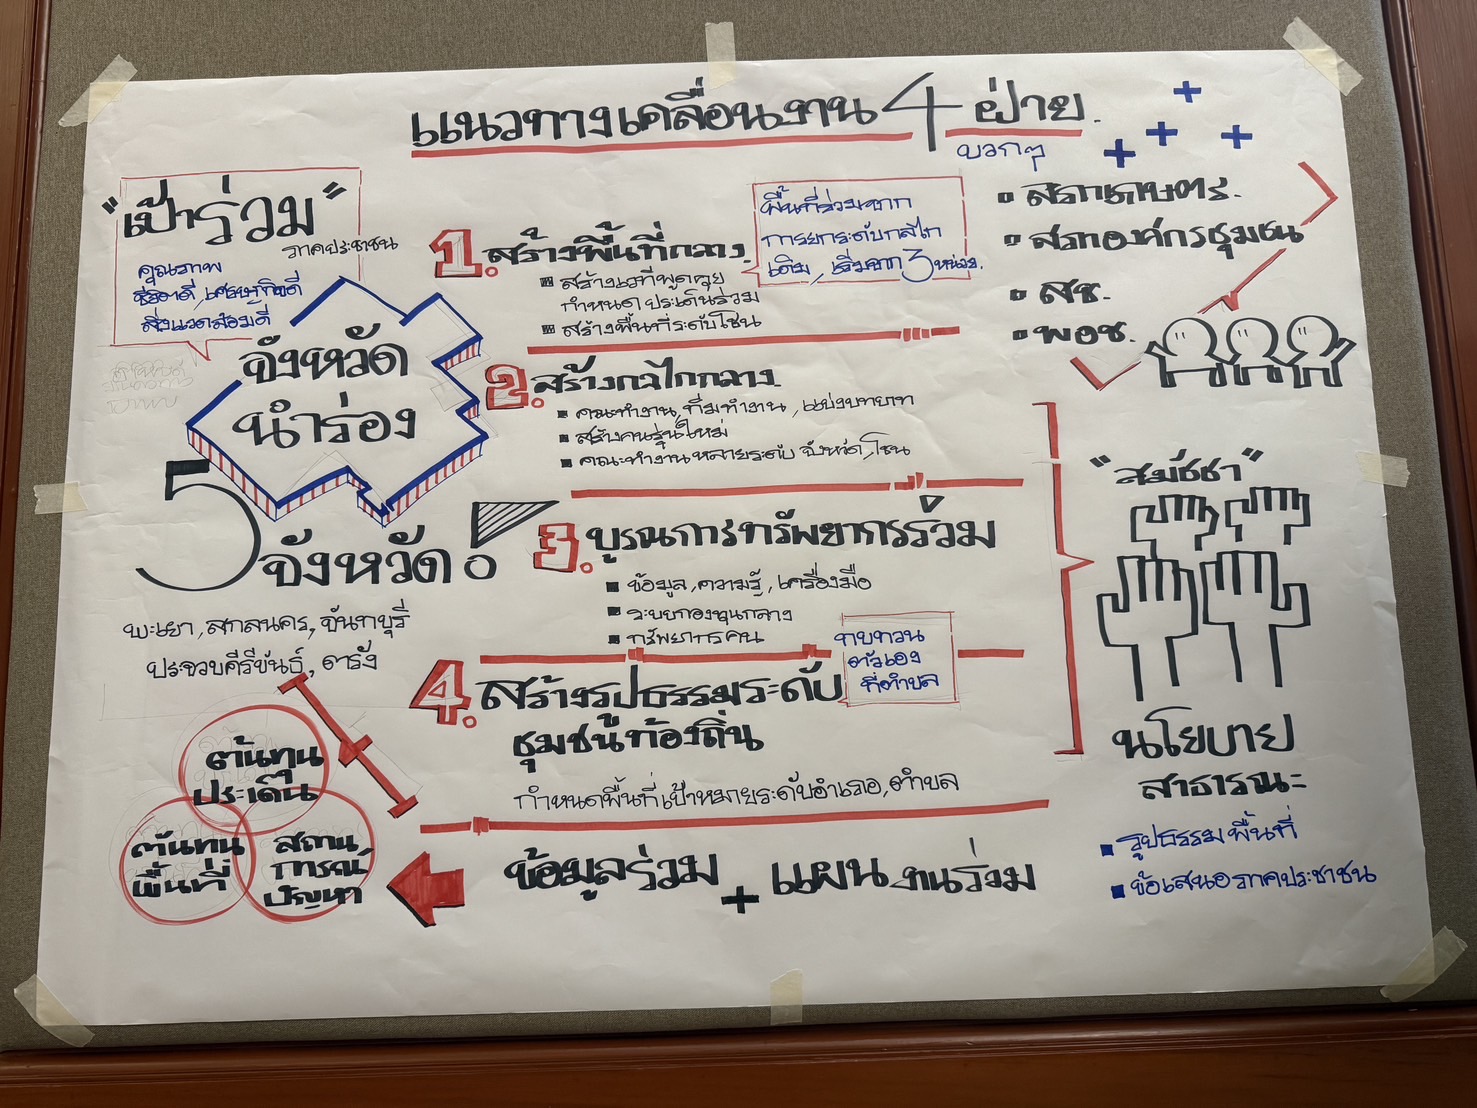 แนวทางเคลื่อนงาน 4 ฝ่าย.
บวกๆ
"เป้าร่วม"
ภาคประชาชน
คุณภาพ
ชีวิตดี, เศรษฐกิจดี
สิ่งแวดล้อมดี
จังหวัด
นำร่อง
5 จังหวัด!
พะเยา, สกลนคร, จันทบุรี
ประจวบคีรีขันธ์, ตรัง
ต้นทุน
ประเด็น
ต้นทุน
พื้นที่
สถาน
การณ์
ปัญหา
1. สร้างพื้นที่กลาง.
สร้างเวทีพูดคุย
กำหนดประเด็นร่วม
สร้างพื้นที่ระดับโซน
พื้นที่ร่วมจาก
การยกระดับกลไก
เดิม, เริ่มจาก 3 หน่วย.
2. สร้างกลไกกลาง.
คณะทำงาน, ทีมทำงาน, แบ่งบทบาท
สร้างคนรุ่นใหม่
คณะทำงานหลายระดับ จังหวัด, โซน
3. บูรณาการทรัพยากรร่วม
ข้อมูล, ความรู้, เครื่องมือ
ระบบกองทุนกลาง
ทรัพยากรคน
4. สร้างรูปธรรมระดับ
ชุมชนท้องถิ่น
ทบทวน
ตัวเอง
ที่ตำบล
กำหนดพื้นที่เป้าหมายระดับอำเภอ, ตำบล
ข้อมูลร่วม + แผนงานร่วม
สภาเกษตร.
สภาองค์กรชุมชน
สช.
พอช.
"สมัชชา"
นโยบาย
สาธารณะ
รูปธรรมพื้นที่
ข้อเสนอภาคประชาชน